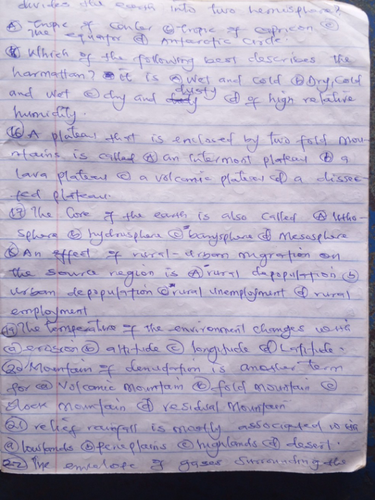 divides the earth into two hemisphere?
a) Tropic of Cancer b) Tropic of capricon c)
The equator d) Antarctic Circle.
Which of the following best describes the
harmattan? It is a) wet and cold b) Dry, cold
and wet c) dry and dusty d) of high relative
humidity.
16) A plateau that is enclosed by two fold mou-
ntains is called a) an intermost plateau b) a
lava plateau c) a volcanic plateau d) a dissec-
ted plateau.
17) The Core of the earth is also called a) litho-
sphere b) hydrosphere c) barysphere d) mesosphere
An effect of rural-urban migration on
the source region is a) rural depopulation b)
urban depopulation c) rural unemployment d) rural
employment
19) The temperature of the environment changes with
a) erosion b) altitude c) longitude d) Latitude.
20) Mountain of denudation is another term
for a) Volcanic mountain b) fold mountain c)
Block mountain d) residual mountain
21) relief rainfall is mostly associated with
a) lowlands b) peneplains c) highlands d) desert.
22) The envelope of gases surrounding the